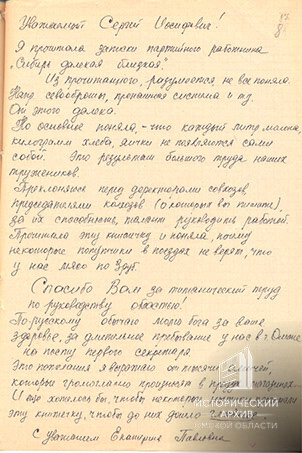 Уважаемый Сергей Иосифович!
Я прочитала записки партийного работника
„Сибирь далекая близкая."
Из прочитанного, разумеется не все поняла.
Надо севообороты, пропашная система и т.д.
От этого далека.
Но основное поняла, – что каждый литр молока,
килограмм хлеба, яички не появятся сами
собой. Это результат большого труда наших
тружеников.
Преклоняюсь перед директорами совхозов,
председателями колхозов (о которых вы пишите),
за их способность, талант руководить работой.
Прочитала эту книжечку и поняла, почему
некоторые попутчики в поездах не верят, что
у нас мясо по 3 руб.
Спасибо Вам за титанический труд
по руководству областью!
По-русскому обычаю молю бога за ваше
здоровье, за длительное пребывание у нас в г. Омске
на посту первого секретаря.
Это пожелания я выражаю от тысячи омичей,
которые громогласно
И еще хотелось бы, чтобы некоторые
эту книжечку, чтобы до них дошло
С уважением Екатерина Павловна
ИСТОРИЧЕСКИЙ
АРХИВ
ОМСКОЙ ОБЛАСТИ